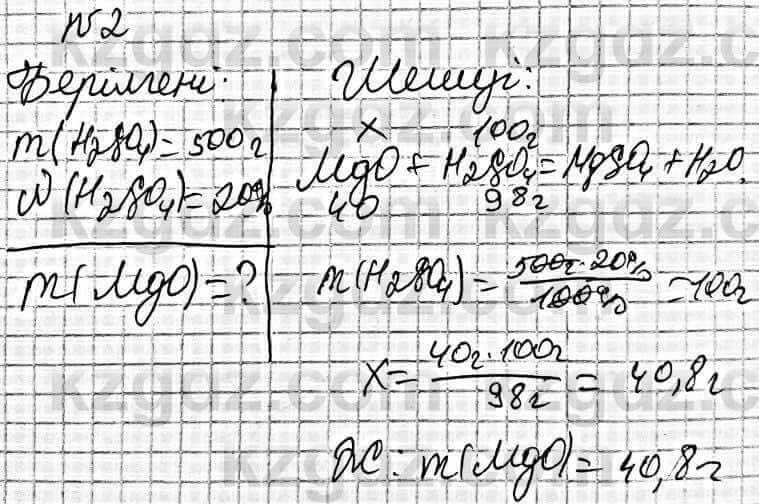 №2
Берілгені:
m(H₂SO₄)=500г
W(H₂SO₄)=20%
m(MgO)=?
Шешуі:
x 100г
MgO + H₂SO₄ = MgSO₄ + H₂O
40 98г
m(H₂SO₄) = 500г·20% / 100% = 100г
x = 40г·100г / 98г = 40,8г
Ж: m(MgO) = 40,8г
kzgdz.com